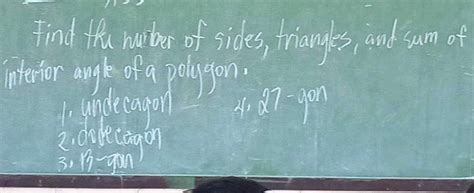 Find the number of sides, triangles, and sum of
interior angle of a polygon.
1. undecagon
2. dodecagon
3. 13-gon
4. 27-gon